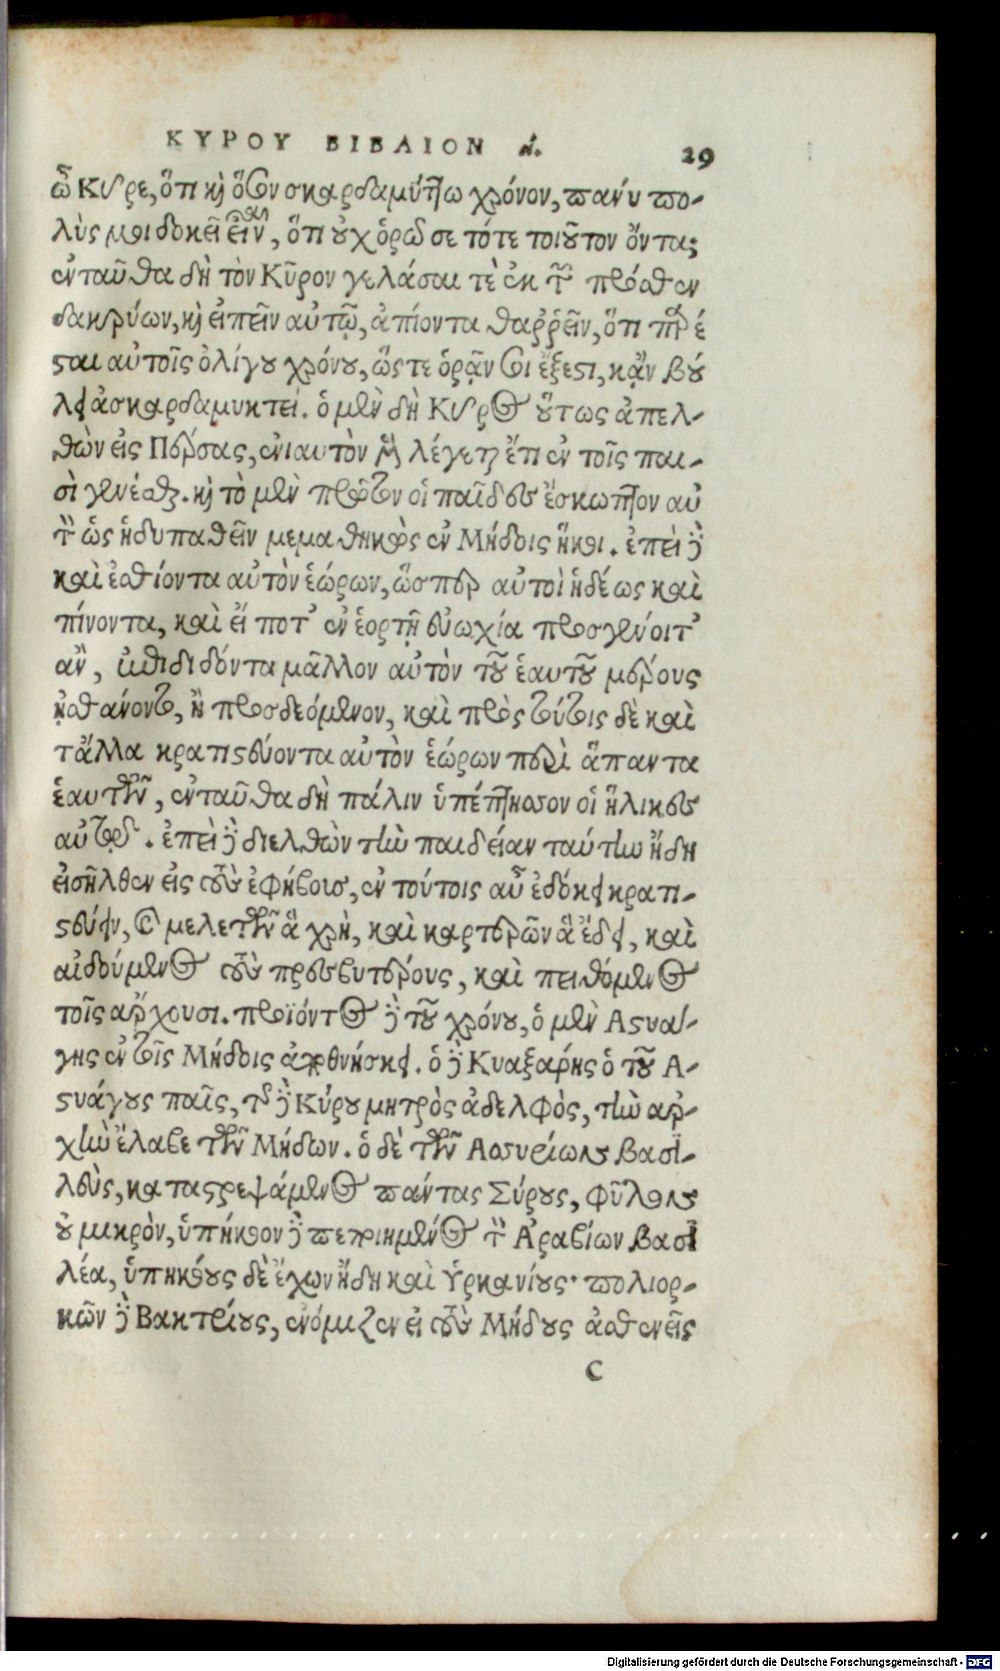 ΚΥΡΟΥ ΒΙΒΛΙΟΝ α. 29
ὦ Κῦρε, ὅτι καὶ ὅσον σκαρδαμύττω χρόνον, πάνυ πο-
λὺς μοι δοκεῖ εἶναι, ὅτι οὐχ ὁρῶ σε τότε τοιοῦτον ὄντα;
ἐνταῦθα δὴ τὸν Κῦρον γελάσαι τὲ ἐκ τῶν πρόσθεν
δακρύων, καὶ εἰπεῖν αὐτῷ, ἀπιόντα θαῤῥεῖν, ὅτι παρέ
σται αὐτοῖς ὀλίγου χρόνου, ὥστε ὁρᾷν σοι ἔξεστι, κᾂν βού
λῃ ἀσκαρδαμυκτεί. ὁ μὲν δὴ Κῦρος οὕτως ἀπελ-
θὼν εἰς Πέρσας, ἐνιαυτὸν μὲν λέγεται ἔτι ἐν τοῖς παι-
σὶ γενέσθαι. καὶ τὸ μὲν πρῶτον οἱ παῖδες ἔσκωπτον αὐ
τὸν ὡς ἡδυπαθεῖν μεμαθηκὼς ἐν Μήδοις ἥκοι. ἐπεὶ δὲ
καὶ ἐσθίοντα αὐτὸν ἑώρων, ὥσπερ αὐτοὶ ἡδέως καὶ
πίνοντα, καὶ εἴ ποτ' ἐν ἑορτῇ εὐωχία προσγένοιτ'
ἂν, ἐπιδιδόντα μᾶλλον αὐτὸν τοῦ ἑαυτοῦ μέρους
ᾐσθάνοντο, ἢ προσδεόμενον, καὶ πρὸς τούτοις δὲ καὶ
τἄλλα κρατιστεύοντα αὐτὸν ἑώρων περὶ ἅπαντα
ἑαυτῶν, ἐνταῦθα δὴ πάλιν ὑπέπτησσον οἱ ἥλικες
αὐτῷ. ἐπεὶ δὲ διελθὼν τὴν παιδείαν ταύτην ἤδη
εἰσῆλθεν εἰς τοὺς ἐφήβους, ἐν τούτοις αὖ ἐδόκει κρατι-
στεύειν, καὶ μελετῶν ἃ χρὴ, καὶ καρτερῶν ἃ ἔδει, καὶ
αἰδούμενος τοὺς πρεσβυτέρους, καὶ πειθόμενος
τοῖς ἄρχουσι. προϊόντος δὲ τοῦ χρόνου, ὁ μὲν Ἀστυά-
γης ἐν τοῖς Μήδοις ἀποθνήσκει. ὁ δὲ Κυαξάρης ὁ τοῦ Α-
στυάγους παῖς, τῆς δὲ Κύρου μητρὸς ἀδελφὸς, τὴν ἀρ-
χὴν ἔλαβε τῶν Μήδων. ὁ δὲ τῶν Ἀσσυρίων βασι-
λεὺς, καταστρεψάμενος πάντας Σύρους, φῦλον
οὐ μικρὸν, ὑπήκοον δὲ πεποιημένος τὸν Ἀραβίων βασι
λέα, ὑπηκόους δὲ ἔχων ἤδη καὶ Ὑρκανίους· πολιορ-
κῶν δὲ Βακτρίους, ἐνόμιζεν εἰ τοὺς Μήδους ἀσθενεῖς
C
Digitalisierung gefördert durch die Deutsche Forschungsgemeinschaft - DFG